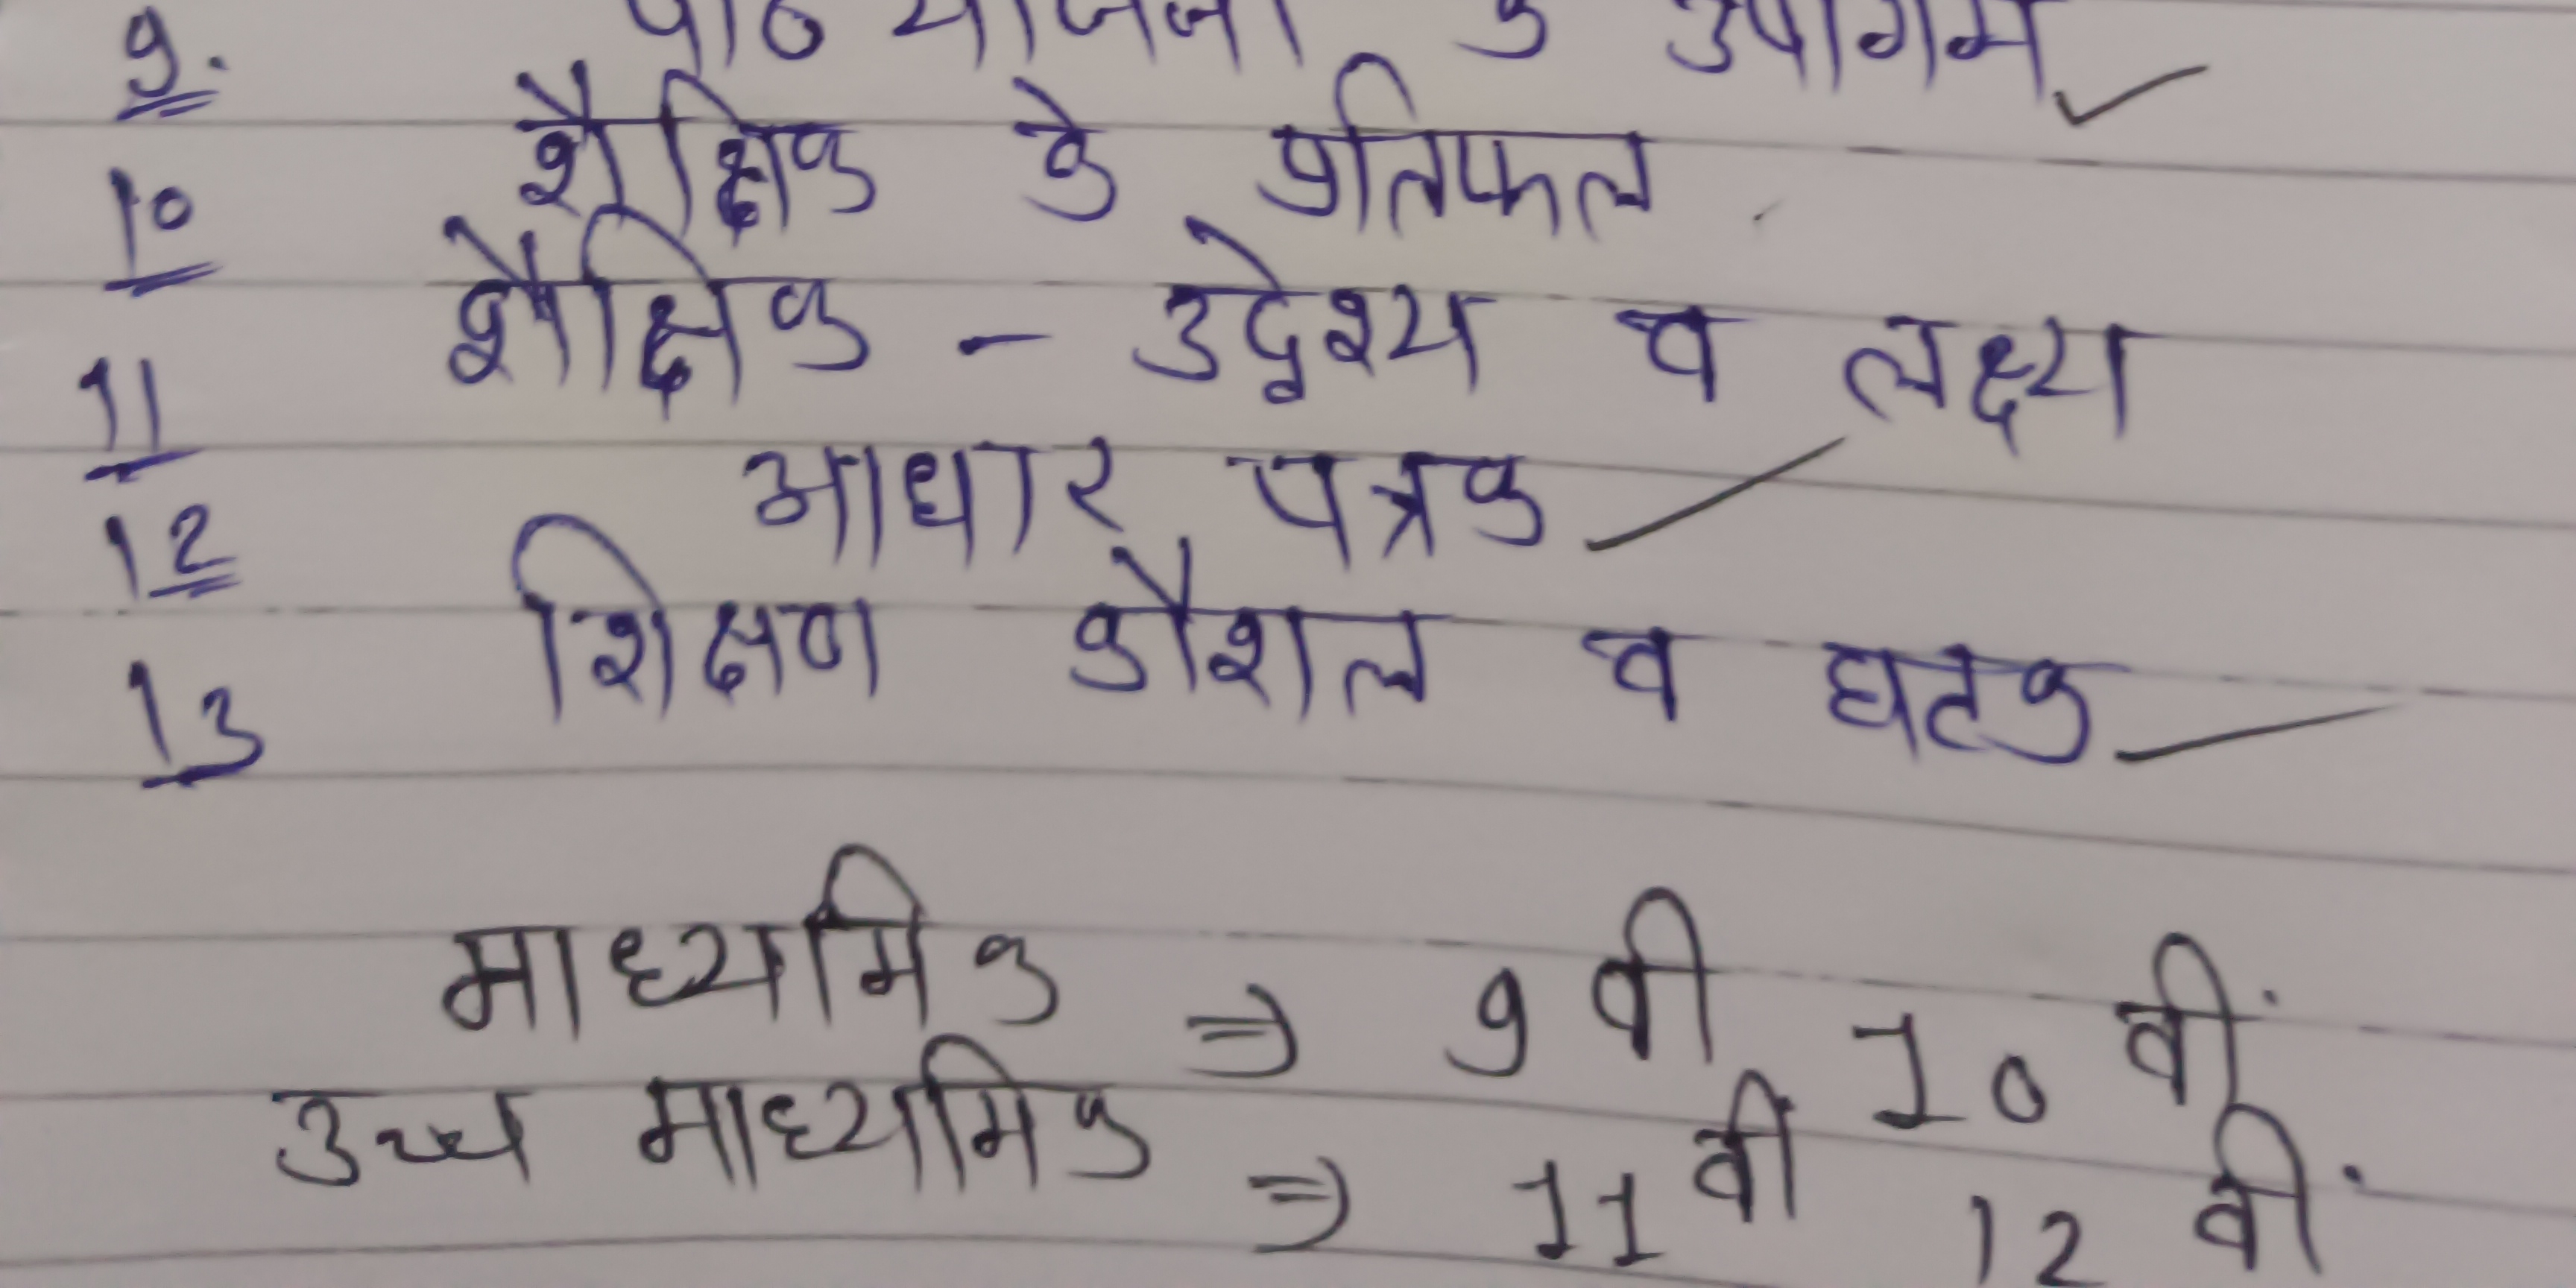 9. पाठ योजना के उपागम ✓
10 शैक्षिक के प्रतिफल
11 शैक्षिक - उद्देश्य व लक्ष्य
12 आधार पत्रक
13 शिक्षण कौशल व घटक
माध्यमिक ⇒ 9 वी 10 वीं
उच्च माध्यमिक ⇒ 11 वी 12 वीं